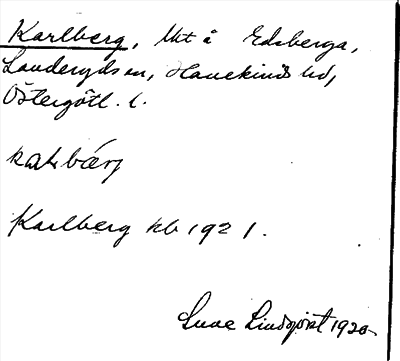 Karlberg, Utt å Edsberga,
Landeryds sn, Hanekinds hd,
Östergötl. l.
kaɭbærj
Karlberg hb 1921.
Sune Lindqvist 1920